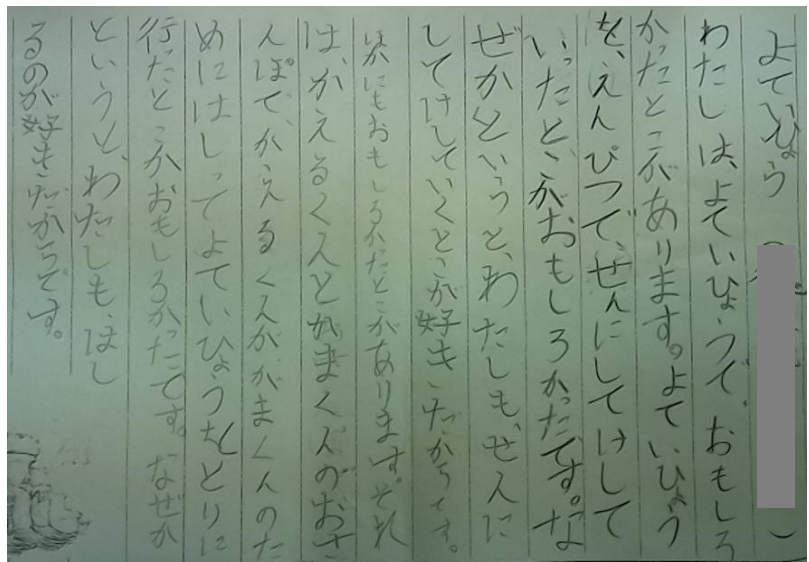 よていひょう（　）
わたしは、よていひょうで、おもしろ
かったとこがあります。よていひょう
を、えんぴつで、せんにしてけして
いったとこがおもしろかったです。な
ぜかというと、わたしも、せんに
してけしていくとこが好きだからです。
ほかにもおもしろかたとこがあります。それ
は、かえるくんとがまくんのおさ
んぽで、かえるくんががまくんのた
めにはしってよていひょうをとりに
行たとこがおもしろかたです。なぜか
というと、わたしも、はし
るのが好きだからです。